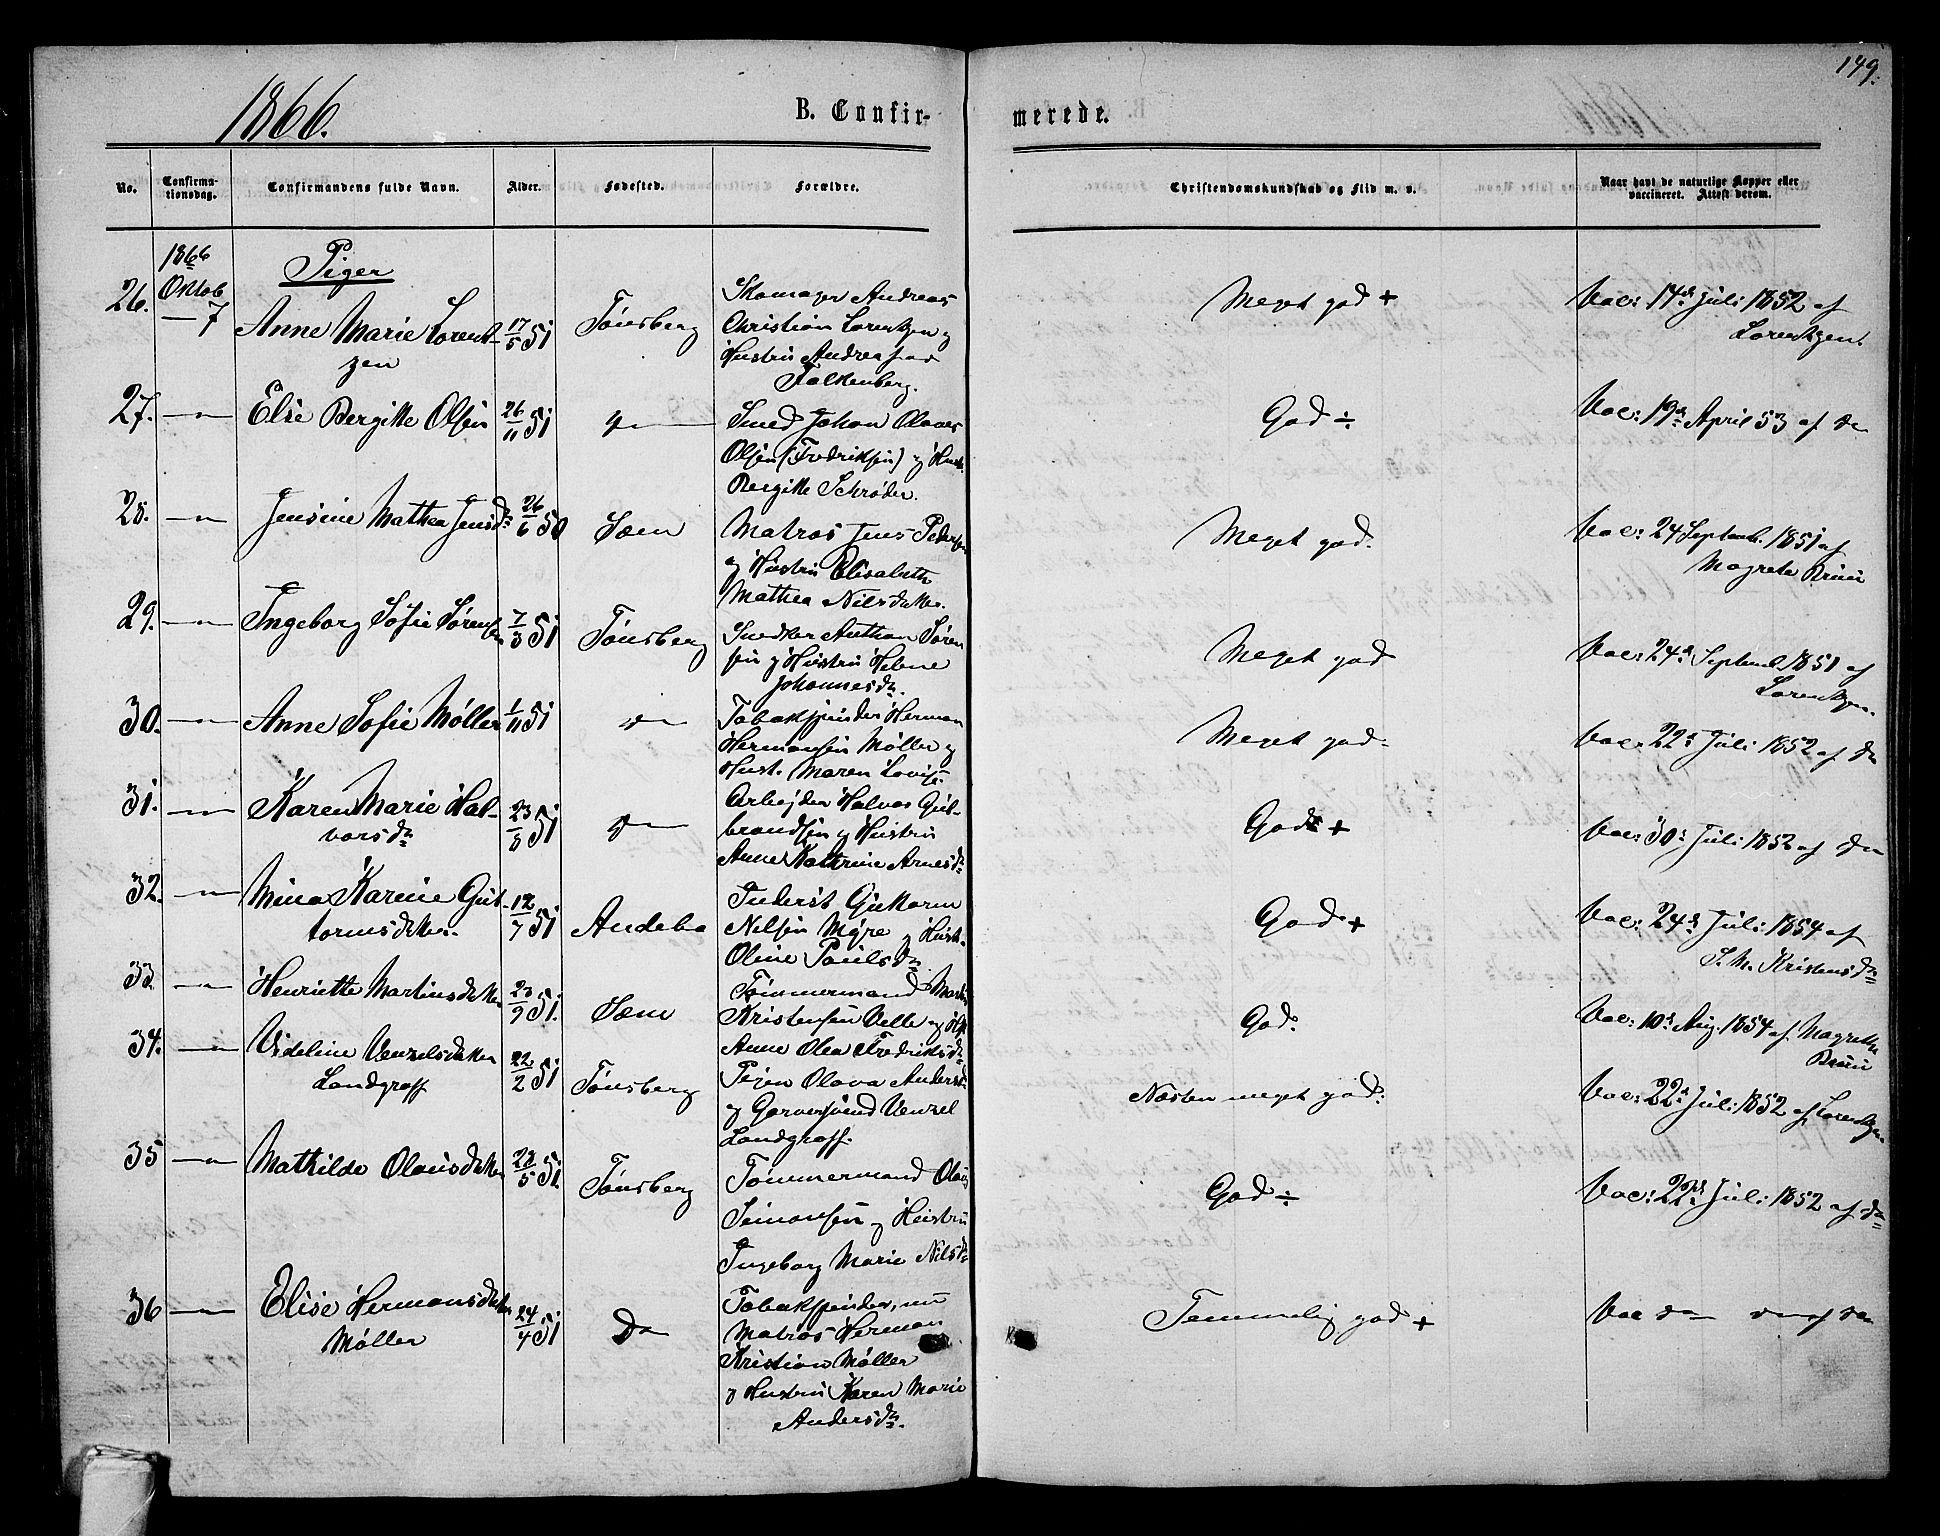 149.
1866.
B. Confir-
merede.
No.
Confirma-
tionsdag.
Confirmandens fulde Navn.
Alder.
Fødested.
Forældre.
Christendomskundskab og Flid m. v.
Naar havt de naturlige Kopper eller
vaccineret. Attest derom.
1866
Oktob
Piger
26. — 7 Anne Marie Lorent-
zen
17/5 51
Tønsberg
Skomager Andreas
Christian Lorentzen og
Hustru Andrea
Falkenberg.
Meget god +
Vac: 14de Juli 1852 af
Lorentzen.
27. —"— Else Bergitte Olsen
26/11 51
Smed Johan Olaves
Olsen (Fredriksen) og Hust.
Bergitte Schrøder.
God ÷
Vac: 19de April 53 af do
28. —"— Jensine Mathea Jensdr
26/6 50
Sæm
Matros Jens Pedersen
og Hustru Elisabeth
Mathea Nilsdatter.
Meget god.
Vac: 24 Septemb. 1851 af
Magrete Bruu
29. —"— Ingeborg Sofie Sørensen
7/3 51
Tønsberg
Snedker Anthon Søren
sen og Hustru Helene
Johannesdr.
Meget god
Vac: 24de Septemb 1851 af
Lorentzen.
30. —"— Anne Sofie Møller
1/11 51
do
Tobakspinder Herman
Hermansen Møller og
Hust. Maren Lovise
Meget god.
Vac: 22de Juli 1852 af do
31. —"— Karen Marie Hal-
vorsdr
23/8 51
do
Arbejder Halvor Gul-
brandsen og Hustru
Anne Kathrine Arnesdr
God +
Vac: 30te Juli 1852 af do
32. —"— Mina Karine Gut-
tormsdatter.
12/7 51
Andebo
Inderst
Nilsen Myre og Hust.
Oline Paulsdr
God +
Vac: 24de Juli 1854 af
S. M. Kristensdr
33. —"— Henriette Martinsdatter
23/9 51.
Sæm
Tømmermand Martin
Kristensen Velle og H
Anne Olea Fredriksdr
God.
Vac: 10de Aug. 1854 af Magrethe
Bruu
34. —"— Videline Venzelsdatter
Landgraff
22/2 51
Tønsberg
Pigen Olava Andersdr
og Garversvend Venzel
Landgraff.
Næsten meget god.
Vac: 22de Juli 1852 af Lorentzen
35 —"— Mathilde Olausdatter
22/5 51.
Tønsberg
Tømmermand Olaus
Simonsen og Hustru
Ingeborg Marie Nilsdr
God ÷
Vac: 22de Juli 1852 af do
36 —"— Elise Hermansdatter
Møller
24/4 51
Do
Tobakspinder, nu
Matros Herman
Kristian Møller
og Hustru Karen Marie
Andersdr.
Temmelig god +
Vac do do af do